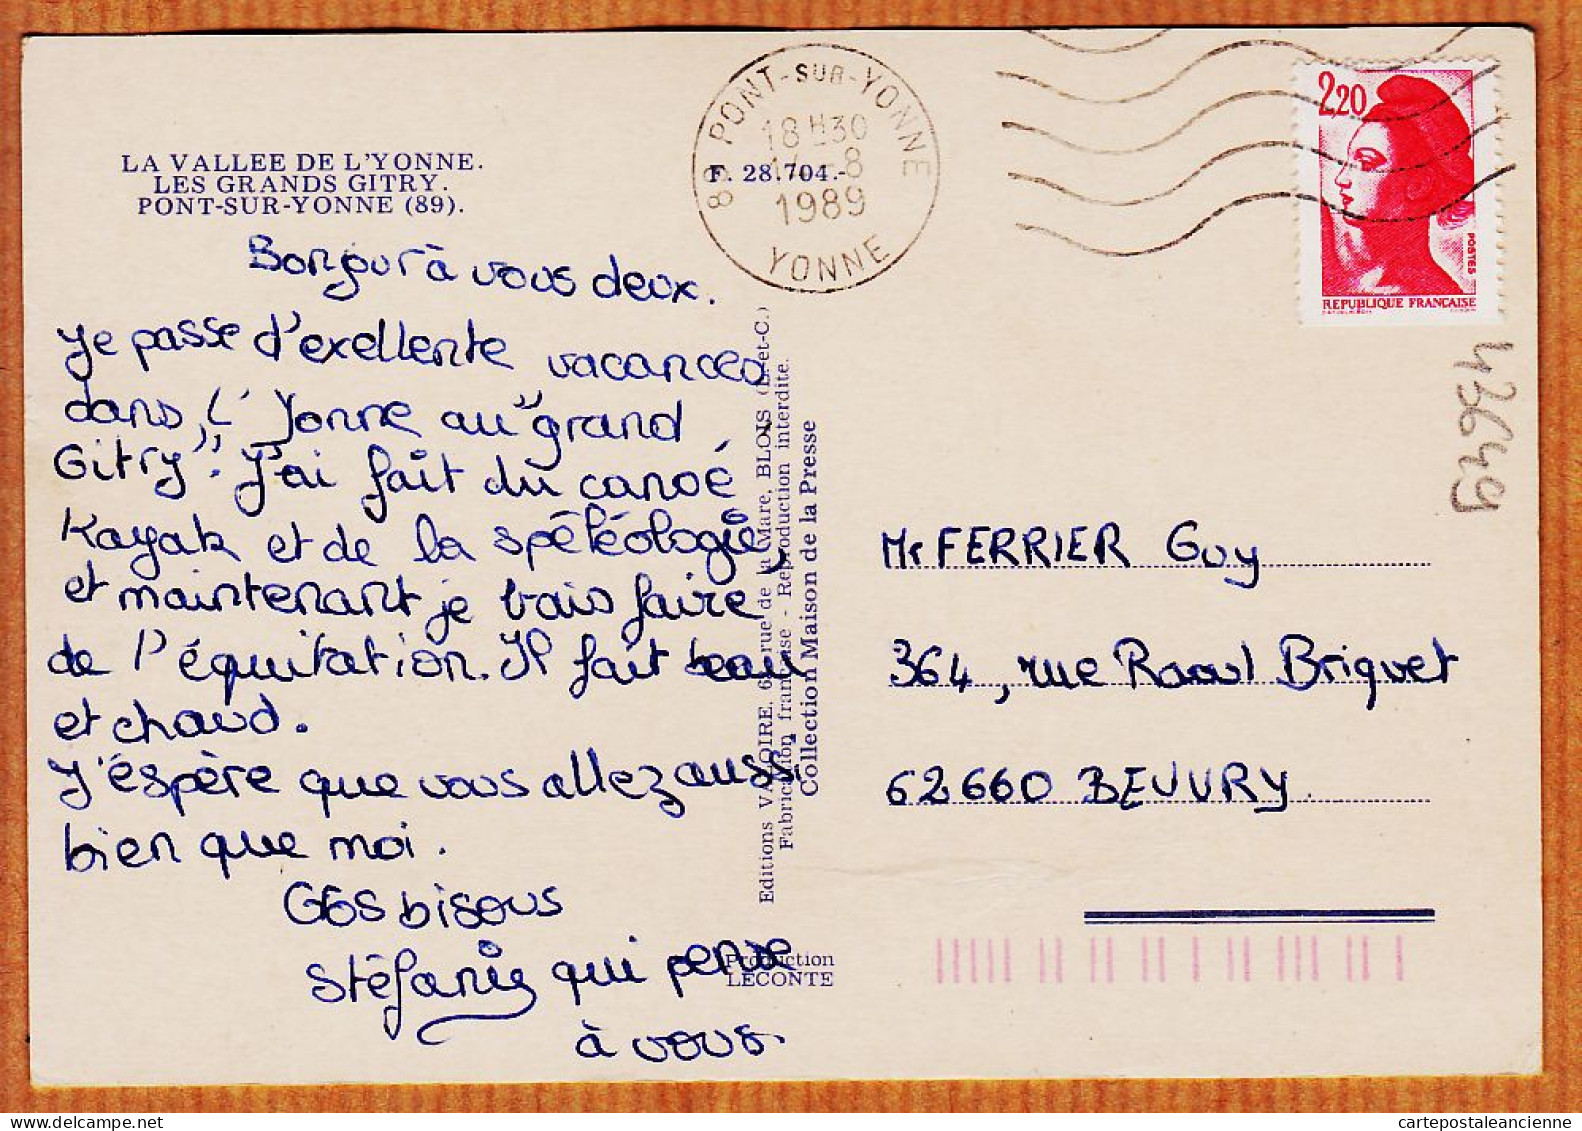 LA VALLEE DE L'YONNE.
LES GRANDS GITRY.
PONT-SUR-YONNE (89).
F. 28.704.-
89 PONT-SUR-YONNE
18H30
1989
YONNE
2,20
POSTES
REPUBLIQUE FRANÇAISE
Bonjour à vous deux.
Je passe d'exellente vacances
dans L'Yonne au "grand
Gitry". J'ai fait du canoé
Kayak et de la spéléologie,
et maintenant je vais faire
de l'équitation. Il fait beau
et chaud.
J'éspère que vous allez aussi
bien que moi.
GROS bisous
Stéfanie qui pense
à vous.
Editions VALOIRE, rue de la Mare, BLOIS (L.-et-C.)
Fabrication française - Reproduction interdite.
Collection Maison de la Presse
Production
LECONTE
Mr FERRIER Guy
364, rue Raoul Briquet
62660 BEUVRY
43649
cartepostaleancienne.com